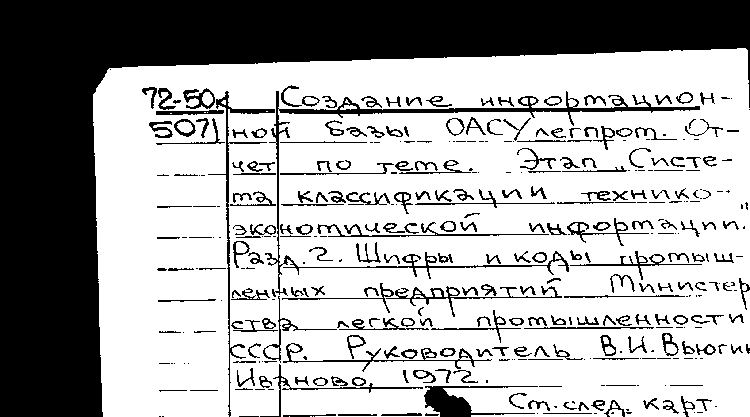 72-50к Создание информацион-
5071 ной базы ОАСУлегпром. От-
чет по теме. Этап „Систе-
ма классификации технико-
экономической информации."
Разд. 2. Шифры и коды промыш-
ленных предприятий Министер
ства легкой промышленности
СССР. Руководитель В.И. Вьюгин
Иваново, 1972.
См. след. карт.